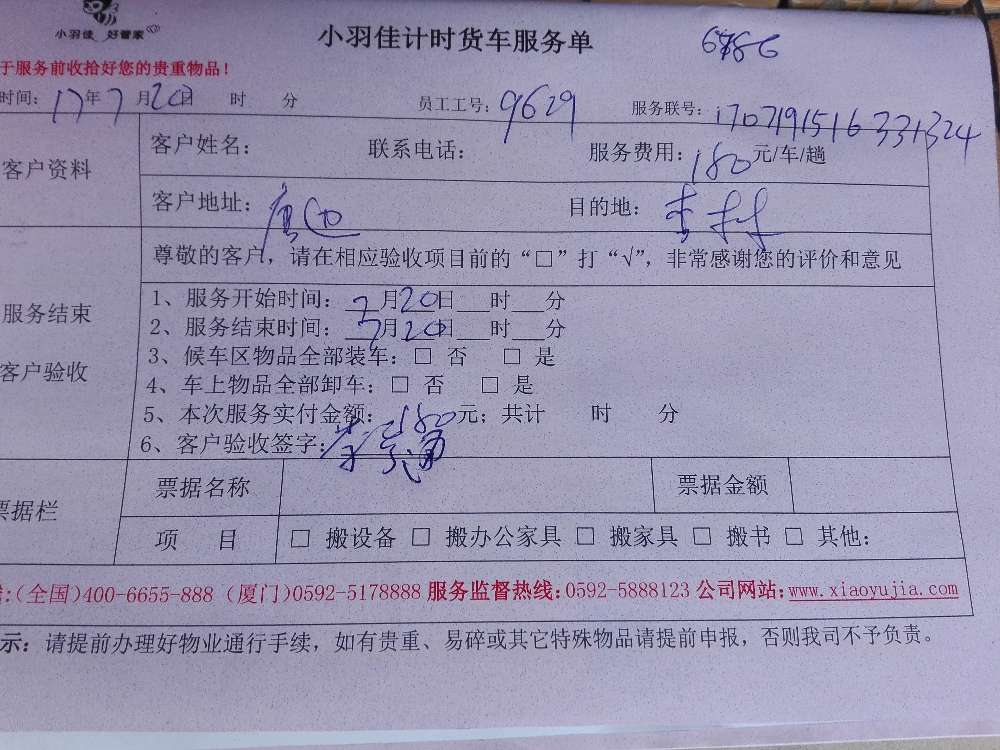 小羽佳 好管家
小羽佳计时货车服务单
于服务前收拾好您的贵重物品!
时间: 17年7月20日 时 分 员工工号: 9629 服务联号: 1707191516331324
客户资料
客户姓名: 联系电话: 服务费用: 180元/车/趟
客户地址: 目的地:
服务结束
客户验收
尊敬的客户,请在相应验收项目前的“□”打“√”,非常感谢您的评价和意见
1、服务开始时间: 7月20日___时___分
2、服务结束时间: 7月20日___时___分
3、候车区物品全部装车: □ 否 □ 是
4、车上物品全部卸车: □ 否 □ 是
5、本次服务实付金额: 180元; 共计 时 分
6、客户验收签字:
票据栏
票据名称 票据金额
项 目 □ 搬设备 □ 搬办公家具 □ 搬家具 □ 搬书 □ 其他:
:(全国)400-6655-888 (厦门)0592-5178888 服务监督热线:0592-5888123 公司网站:www.xiaoyujia.com
示: 请提前办理好物业通行手续, 如有贵重、易碎或其它特殊物品请提前申报, 否则我司不予负责。